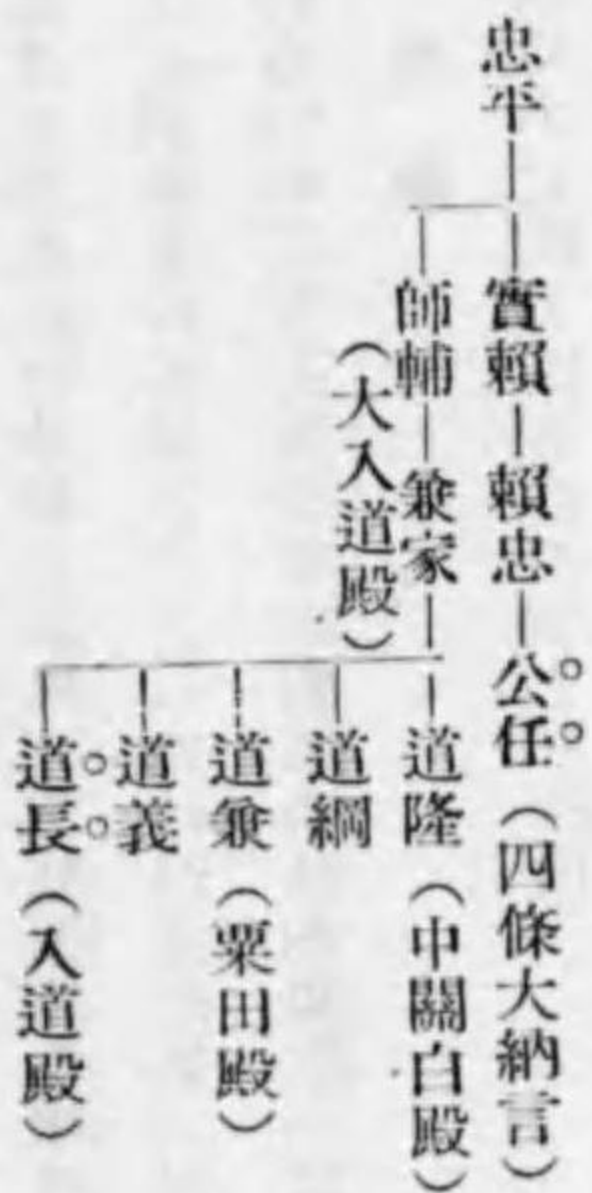 忠平
實賴―賴忠―公任(四條大納言)
師輔―兼家
(大入道殿)
道隆(中關白殿)
道綱
道兼(粟田殿)
道義
道長(入道殿)